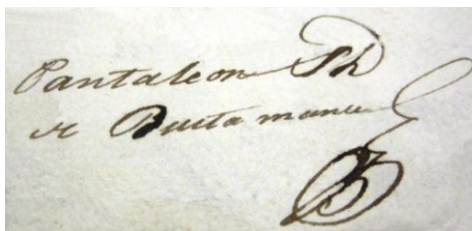 Pantaleon Sh
Bustamante